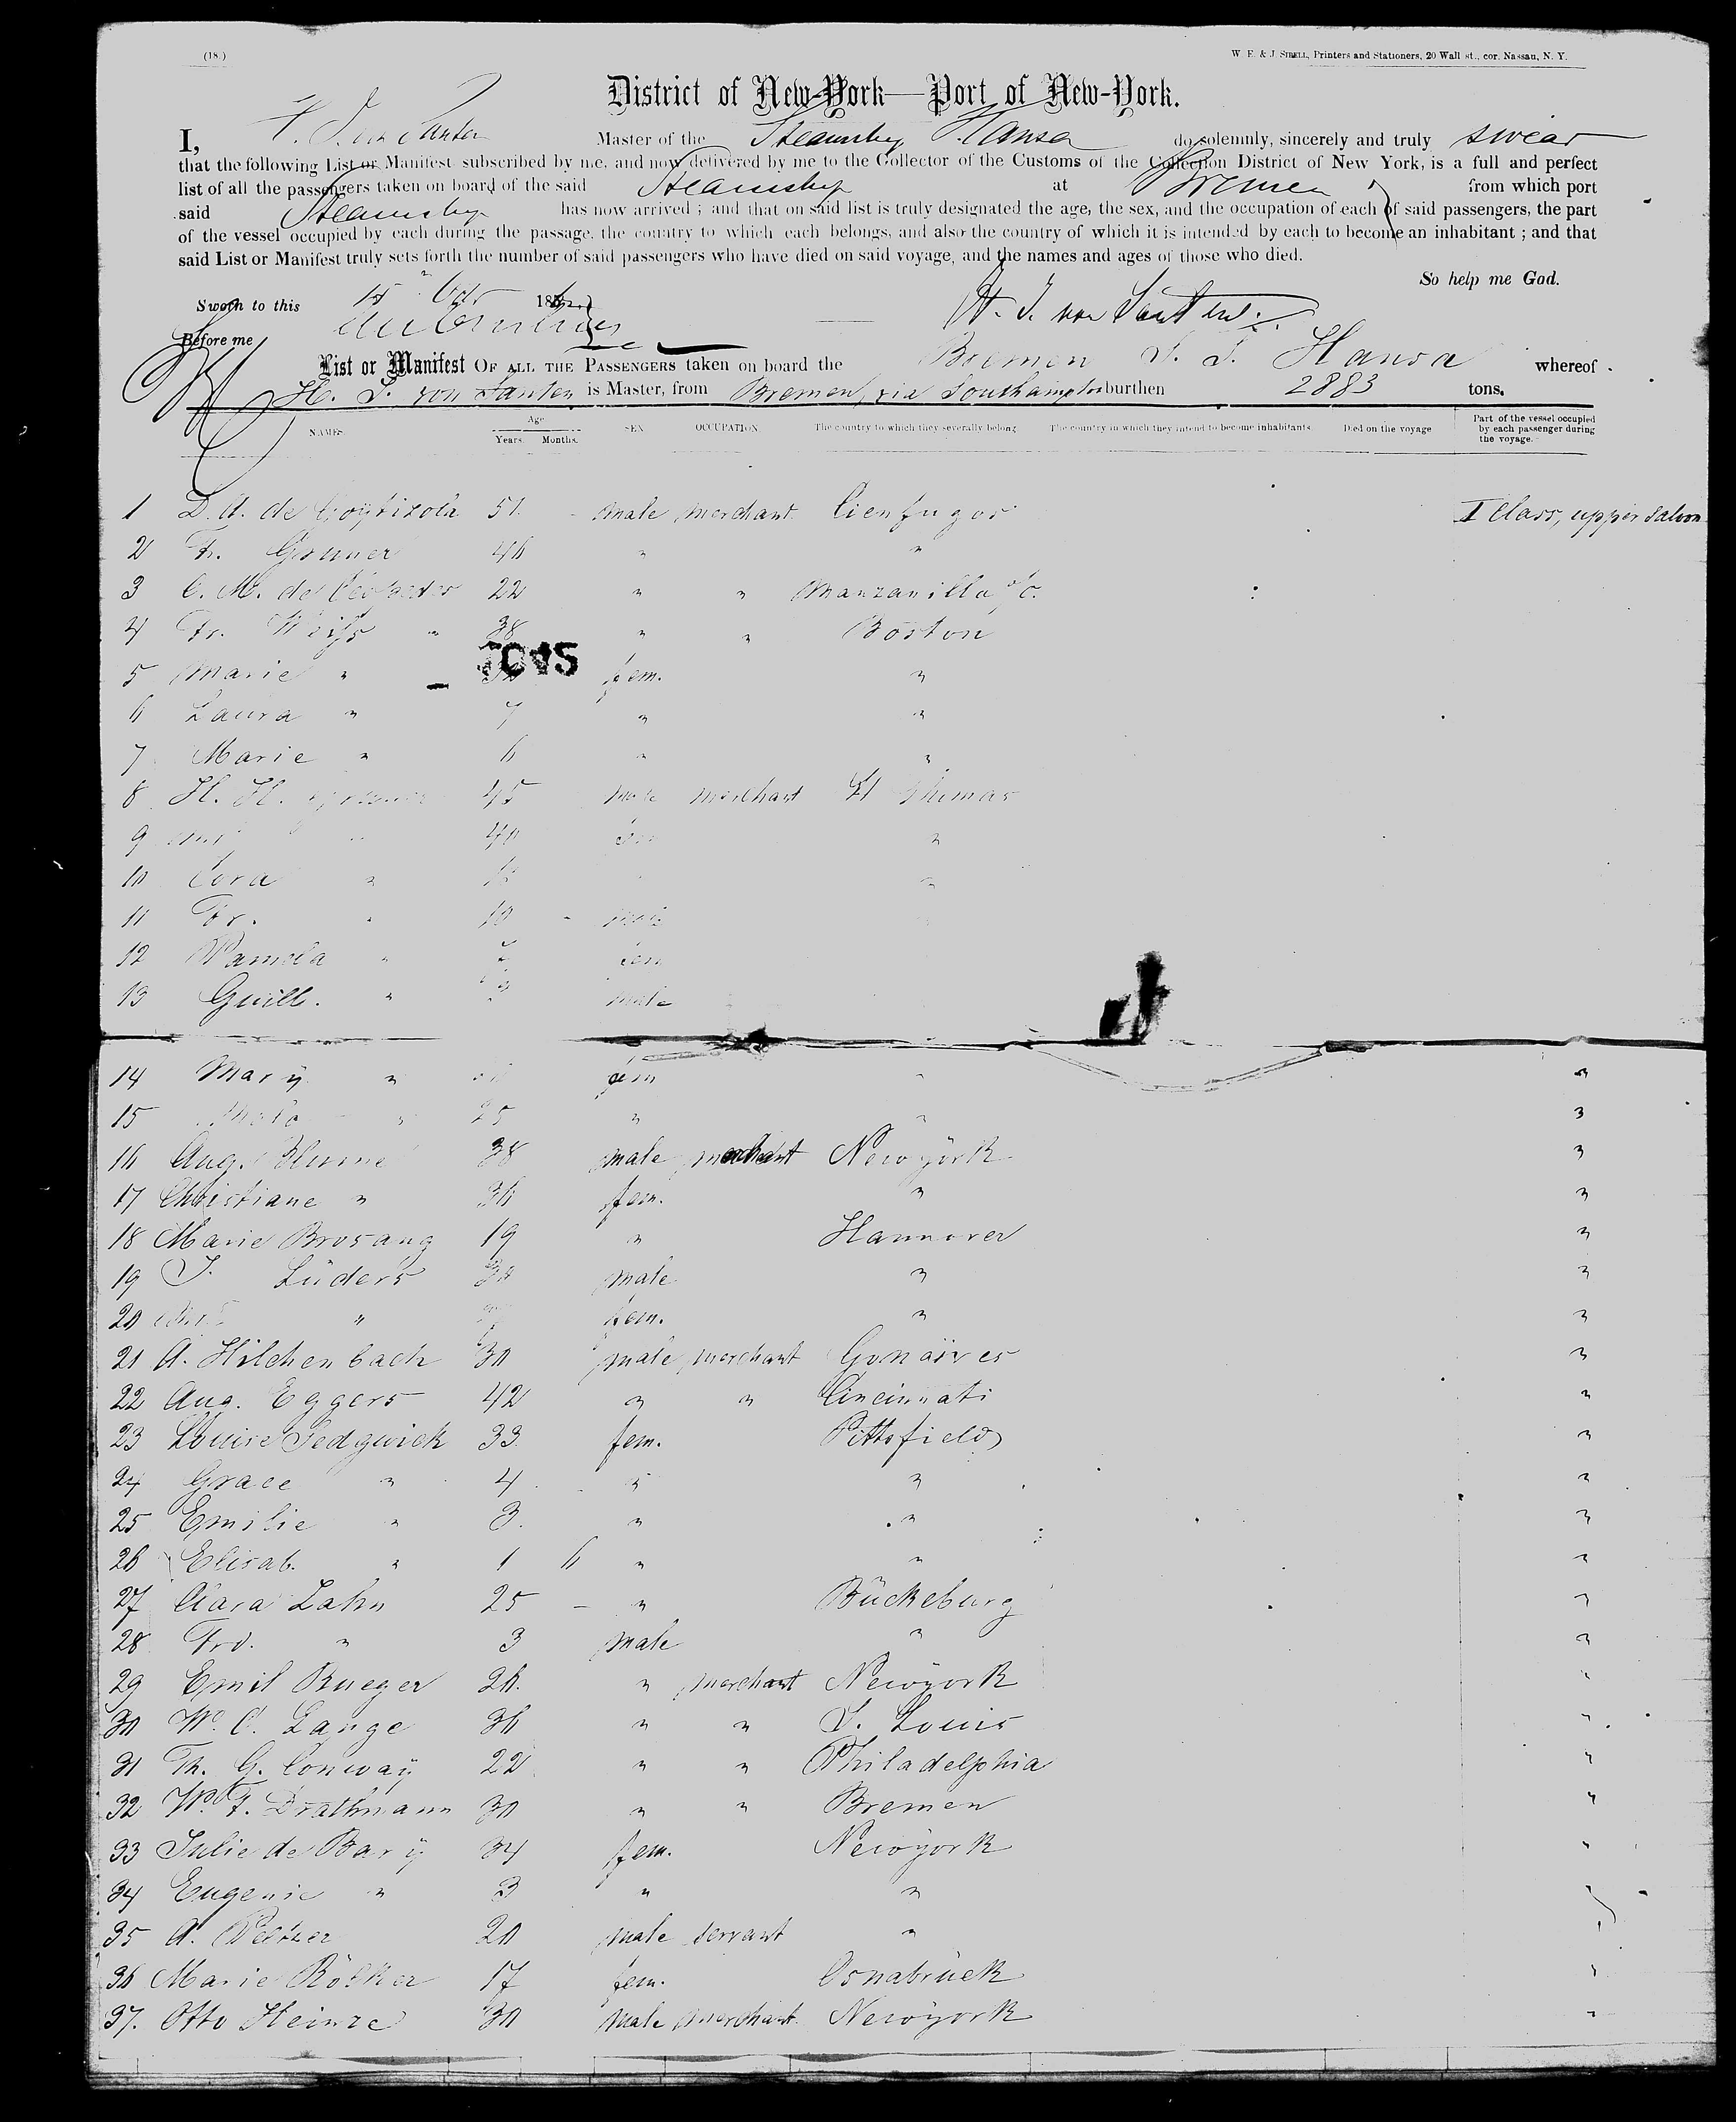 (18.)
W. E. & J. SIBELL, Printers and Stationers, 20 Wall st., cor. Nassau, N. Y.
District of New-York—Port of New-York.
I, Master of the Steamship Hansa do solemnly, sincerely and truly swear
that the following List or Manifest subscribed by me, and now delivered by me to the Collector of the Customs of the Collection District of New York, is a full and perfect
list of all the passengers taken on board of the said Steamship at Bremen from which port
said Steamship has now arrived ; and that on said list is truly designated the age, the sex, and the occupation of each of said passengers, the part
of the vessel occupied by each during the passage, the country to which each belongs, and also the country of which it is intended by each to become an inhabitant ; and that
said List or Manifest truly sets forth the number of said passengers who have died on said voyage, and the names and ages of those who died.
So help me God.
Sworn to this 15 186
H. J. von Santen
Before me
List or Manifest OF ALL THE PASSENGERS taken on board the Bremen S. S. Hansa whereof
H. J. von Santen is Master, from Bremen, via Southampton burthen 2883 tons.
NAMES. Age Years. Months. SEX OCCUPATION. The country to which they severally belong. The country in which they intend to become inhabitants. Died on the voyage Part of the vessel occupied by each passenger during the voyage.
1 D. A. de 51. male merchant Cienfugos I Class, upper saloon
2 Fr. Gruner 46 " "
3 C. M. de Cespedes 22 " " Manzanilla
4 Fr. Weifs " 38 " " Boston
5 Marie " fem. "
6 Laura " 7 " "
7 Marie " 6 " "
8 H. H. 45 male merchant St Thomas
9 " 40 fem "
10 Cora " "
11 Fr. " 10 - male
12 Pamela " fem
13 Guill. " male
14 Mary " fem " "
15 " 25 " " "
16 Aug. Blume 38 male merchant Newyork "
17 Christiane " 36 fem. " "
18 Marie Brosang 19 " Hannover "
19 J. Lüders 30 male " "
20 " fem. " "
21 A. Hilchenbach 30 male merchant Gonaives "
22 Aug. Eggers 42 " " Cincinnati "
23 Louise Sedgwick 33 fem. Pittsfield "
24 Grace " 4 " " "
25 Emilie " 3. " " "
26 Elisab. " 1 6 " " "
27 Clara Lahn 25 - " Bückeburg "
28 Frd. " 3 male " "
29 Emil Bueger 26. " merchant Newyork "
30 Wm. C. Lange 36 " " S. Louis "
31 Th. G. Conway 22 " " Philadelphia "
32 Wm. F. Drathmann 30 " " Bremen "
33 Julie de Bary 34 fem. Newyork "
34 Eugenie " 3 " " "
35 A. 20 male servant " "
36 Marie Rölker 17 fem. Osnabrück "
37. Otto Heinze 30 male merchant Newyork "